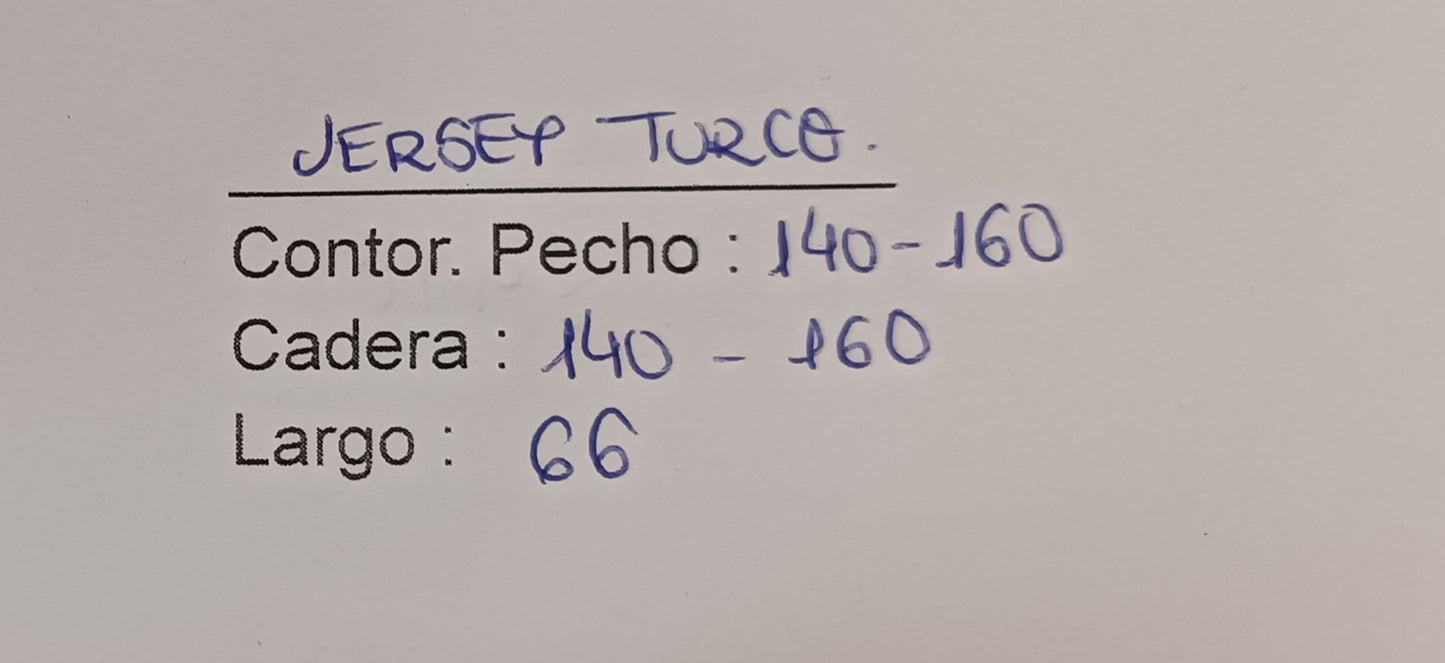 JERSEY TURCO.
Contor. Pecho : 140-160
Cadera : 140 - 160
Largo : 66